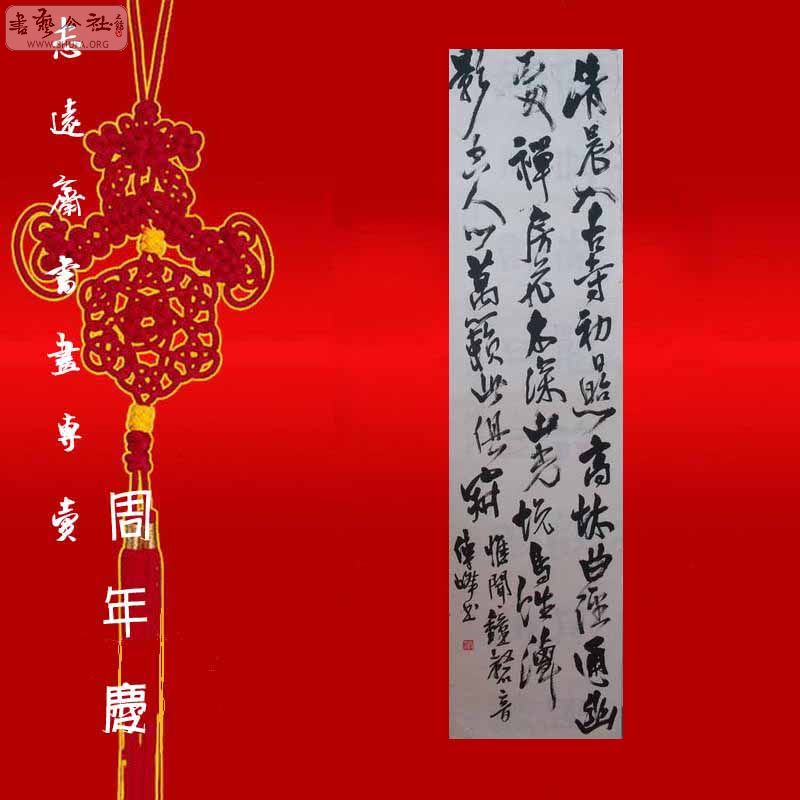 書藝公社
WWW.SHUFA.ORG
志遠齋書畫專賣
周年慶
清晨入古寺初日照高林曲徑通幽
處禪房花木深山光悅鳥性潭
影空人心萬籟此俱寂
惟聞鐘磬音